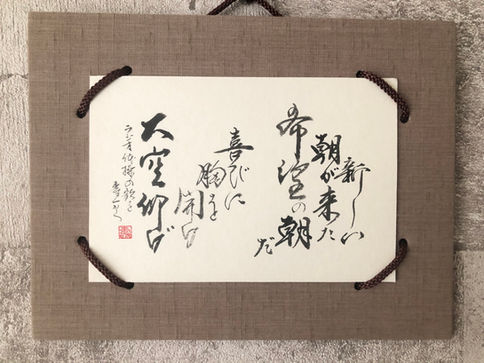 新しい
朝が来た
希望の朝
だ
喜びに
胸を
開け
大空仰げ
ラジオ体操の歌を